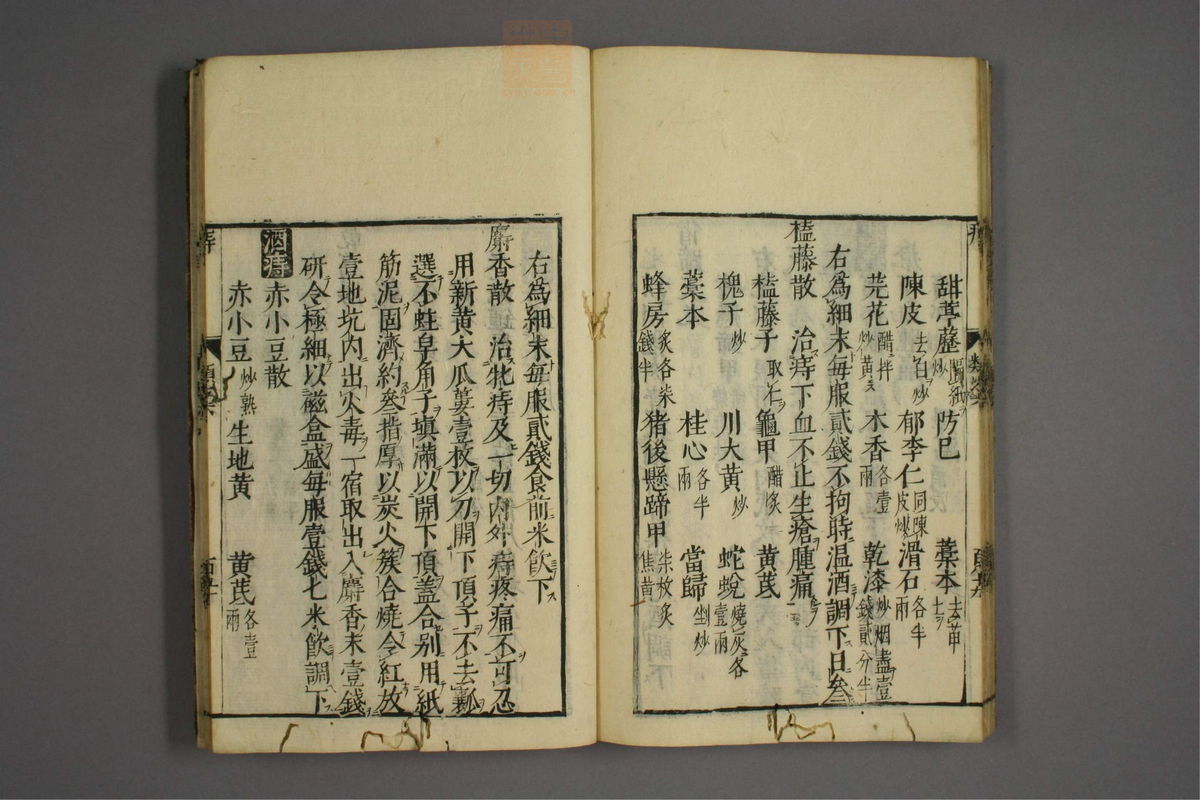 甜葶藶隔紙炒 防巳 藁本去苗土
陳皮去白炒 郁李仁同陳皮炒 滑石各半兩
芫花醋拌炒黃 木香各壹兩 乾漆炒烟盡壹錢貳分半
右爲細末每服貳錢不拘時温酒調下日叁
榼藤散 治痔下血不止生瘡腫痛
榼藤子取仁 龜甲醋炙 黃芪
槐子炒 川大黃炒 蛇蛻燒灰各壹兩
藁本 桂心各半兩 當歸剉炒
蜂房炙各柒錢半 猪後懸蹄甲柒枚炙焦黃
右爲細末每服貳錢食前米飲下
麝香散 治牝痔及一切内外痔疼痛不可忍
用新黃大瓜蔞壹枚以刀開下頂子不去瓤
選不蛀皁角子填滿以開下頂蓋合别用紙
筋泥固濟約叁指厚以炭火簇合燒令紅放
壹地坑内出火毒一宿取出入麝香末壹錢
研令極細以磁盒盛每服壹錢七米飲調下
酒痔 赤小豆散
赤小豆炒熟 生地黃 黃芪各壹兩